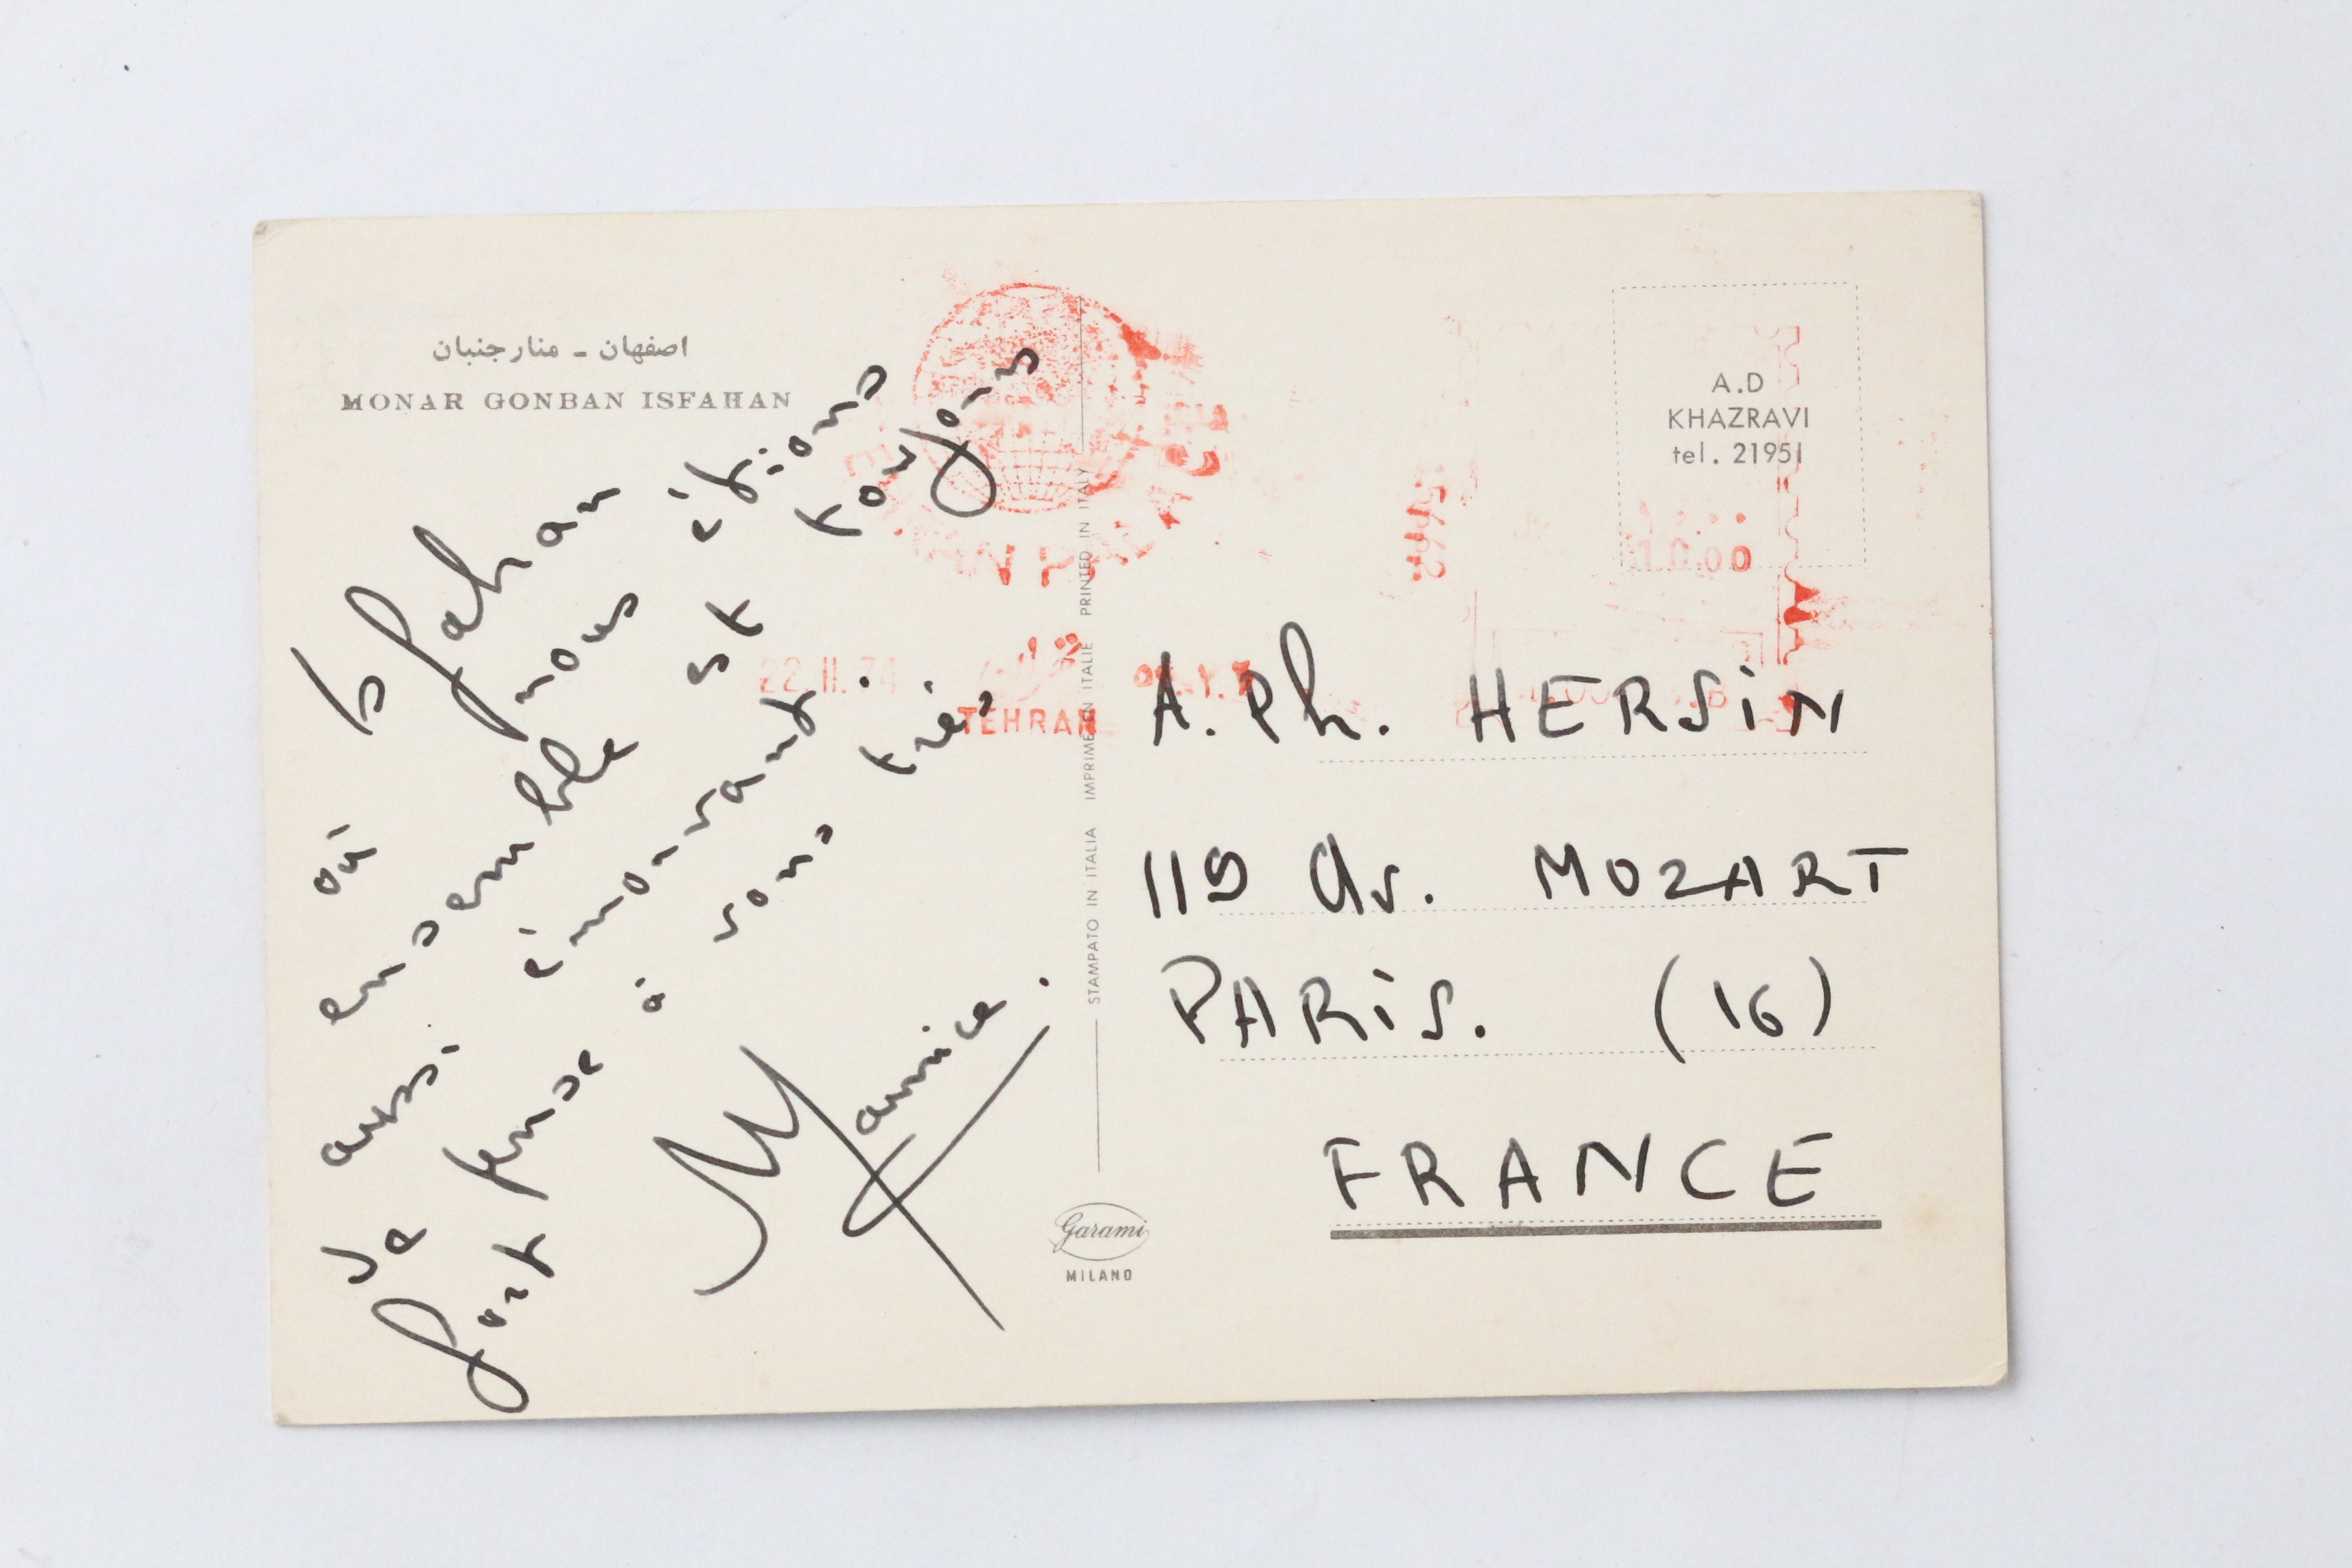 اصفهان ـ منارجنبان
MONAR GONBAN ISFAHAN
Isfahan
où nous étions
ensemble est toujours
aussi émouvant.
Je pense à vous très
fort
22.11.74
TEHRAN
STAMPATO IN ITALIA IMPRIMÉ EN ITALIE PRINTED IN ITALY
Garami
MILANO
A.D
KHAZRAVI
tel. 21951
A. Ph. HERSIN
Av. MOZART
PARIS. (16)
FRANCE